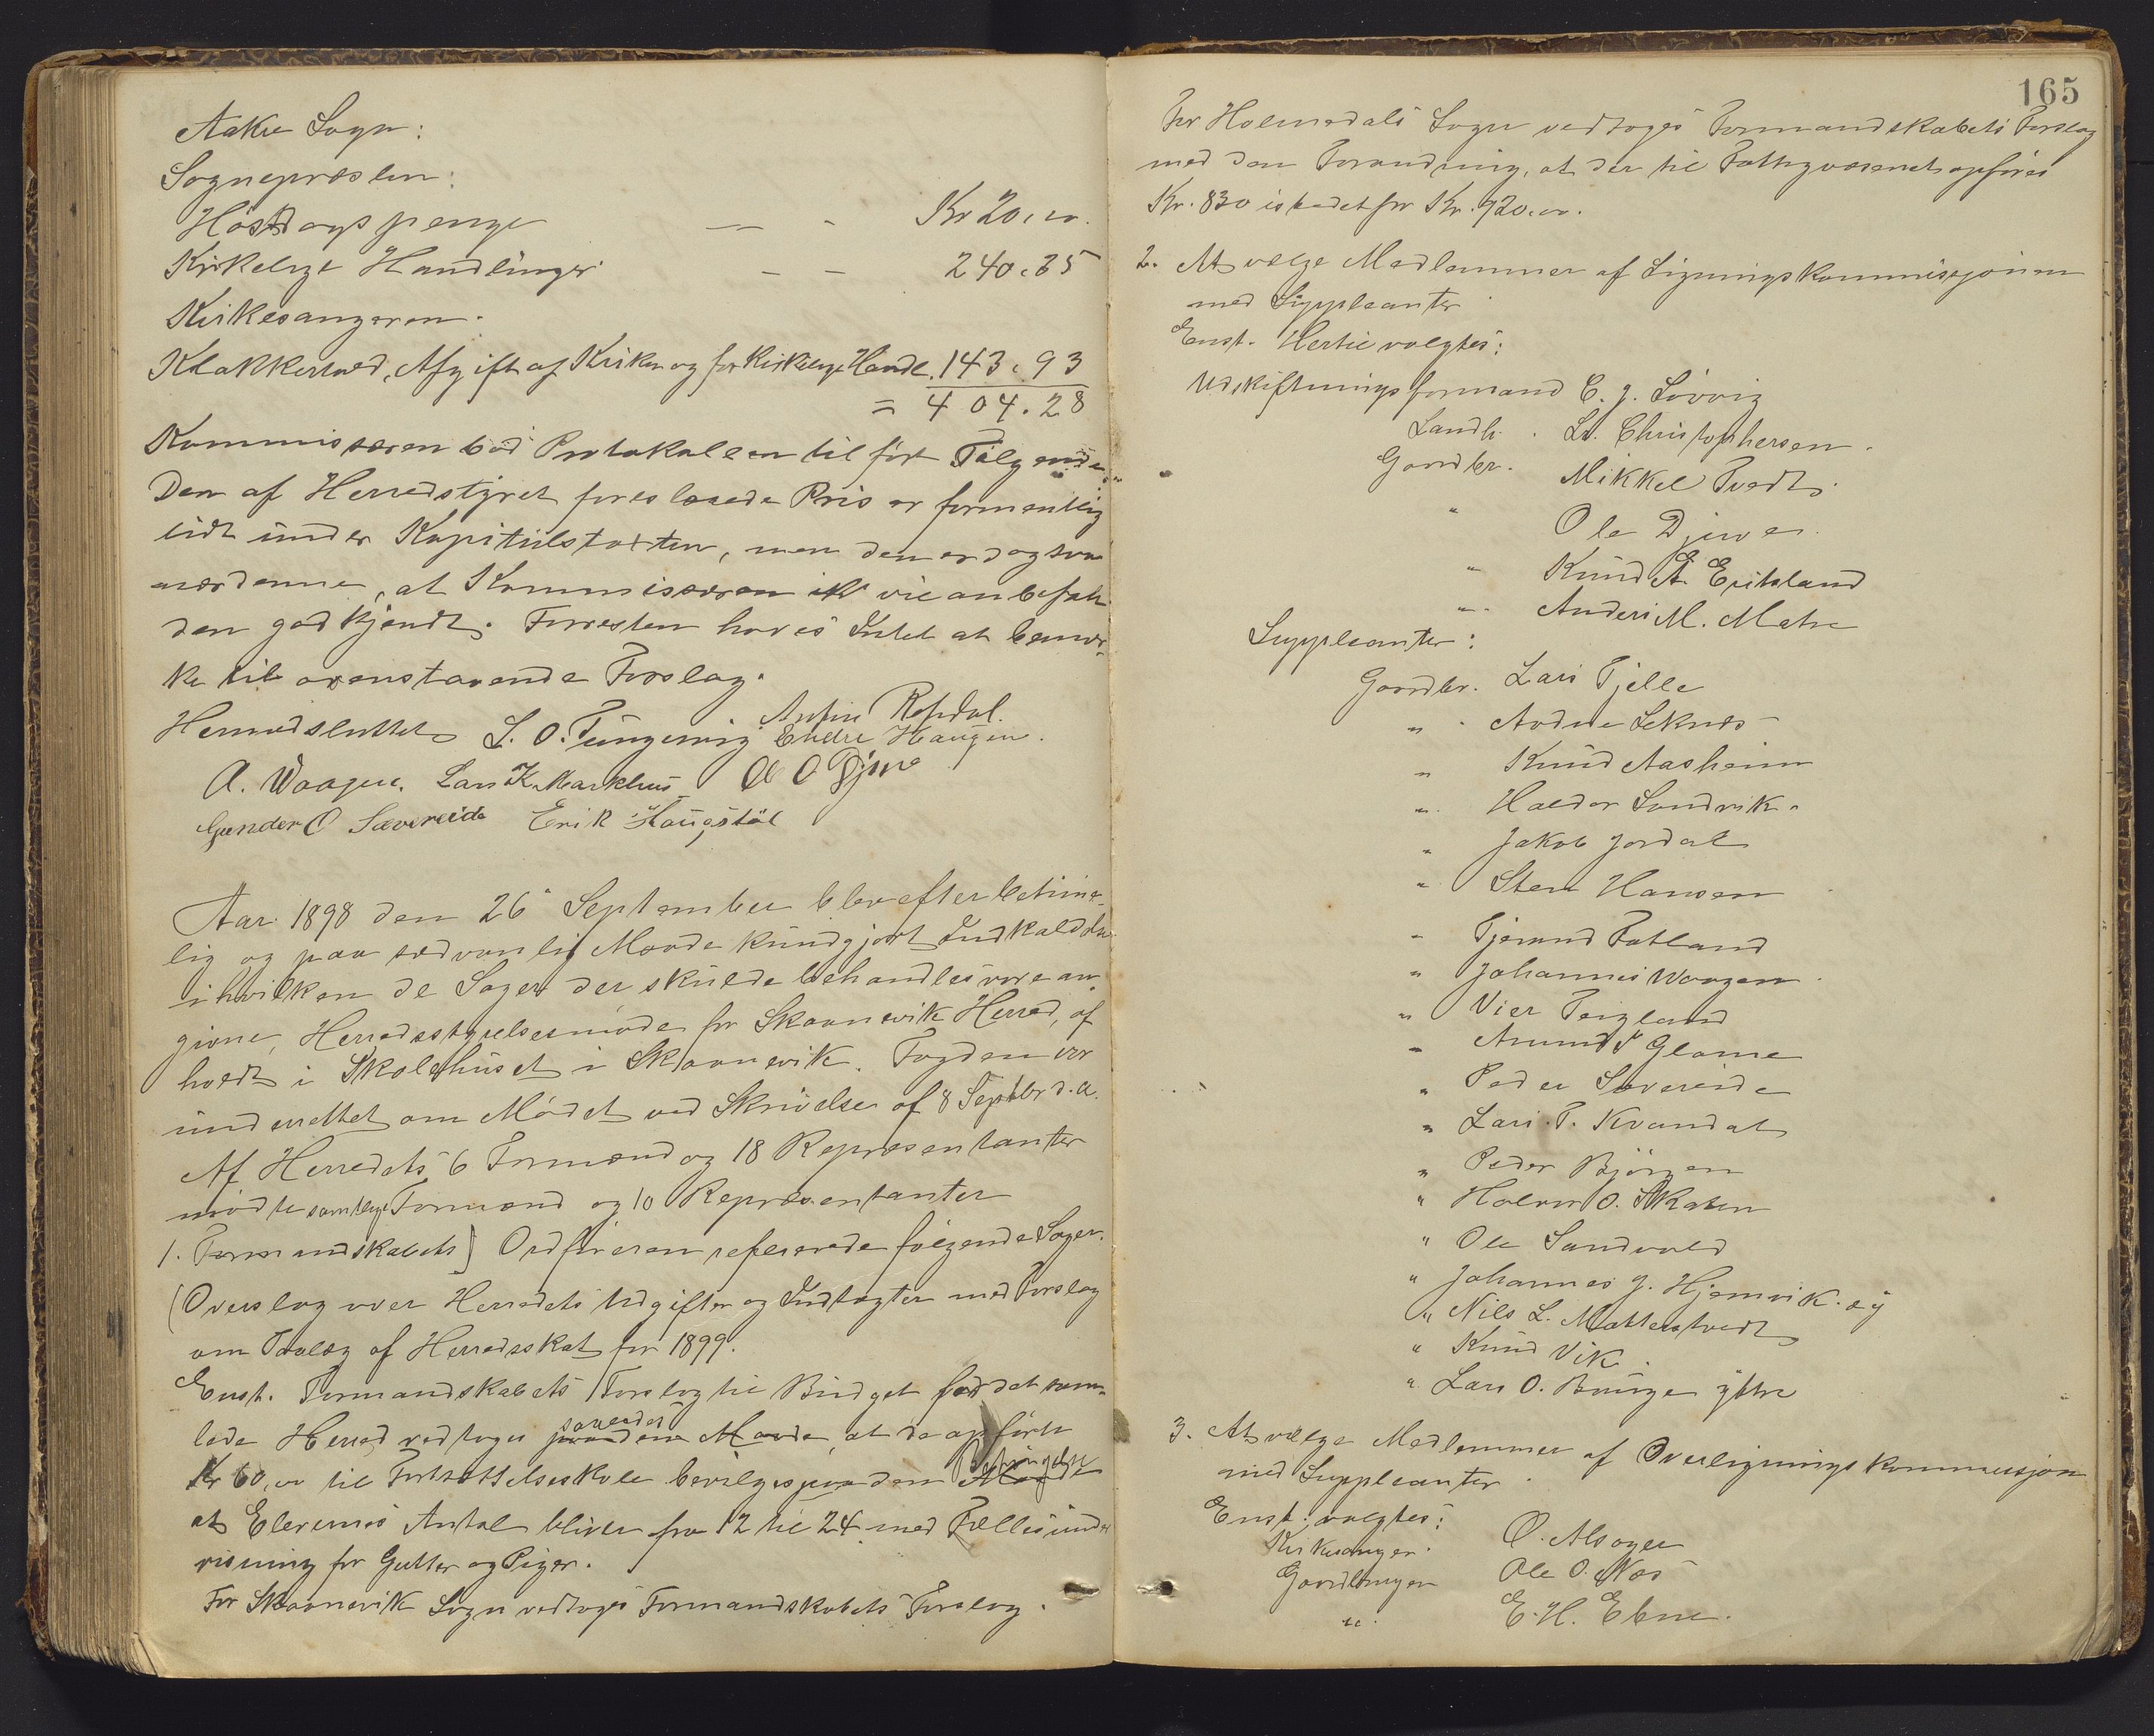 Aakre Sogn:
Sognepræsten:
Höstdagspenge — - Kr 20,00.
Kirkelige Handlinger - - 240,35
Kirkesangeren.
Klokkertold, Afgift af Kirken og for Kirkelige Handl. 143,93
= 404.28
Kommissæren bød Protokollen tilført Følgende:
Den af Herredstyret foreslaaede Pris er formentlig
lidt under Kapitelstaxten, men den er dog saa
nær denne, at Kommissæren vil anbefale
den godkjendt. Forresten haves Intet at bemær-
ke til ovenstaaende Forslag.
Hermed sluttet L. O. Tungesvig Endre Haugen.
A. Waagen. Lars K. Markhus O O Djuve
Gunder O Sævereide Erik Haugstöl
Aar 1898 den 26 September blev efter betime-
lig og paa sædvanlig Maade kundgjort Indkaldelse
i hvilken de Sager der skulde behandles vare an-
givne, Herredsstyrelsesmöde for Skaanevik Herred, af
holdt i Skolehuset i Skaanevik. Fogden var
underrettet om Mödet ved Skrivelse af 8 Septbr d. a.
Af Herredets 6 Formænd og 18 Repræsentanter
mödte samtlige Formænd og 10 Repræsentanter
1. Formandskabets] Ordföreren refererede fölgende Sager.
(Overslag over Herredets Udgifter og Indtægter med Forslag
om Paalæg af Herredsskat for 1899.
Enst. Formandskabets Forslag til Budget for det sam-
lede Herred vedtoges saaledes paa den Maade, at de opförte
Kr 60,00 til Fortsættelsesskole bevilges paa den Betingelse
at Elevernes Antal bliver fra 12 til 24 med Fælles under
visning for Gutter og Piger.
For Skaanevik Sogn vedtoges Formandskabets Forslag.
165
For Holmedals Sogn vedtoges Formandskabets Forslag
med den Forandring, at der til Fattigvæsenet opföres
Kr. 830 istedet for Kr. 720,00.
2. At vælge Medlemmer af Ligningskommissjonen
med Suppleanter
Enst. Hertil valgtes:
Udskiftningsformand C. J. Lövvig
Landh. L. Christophersen.
Gaardbr. Mikkel Tvedt
" Ole Djuve.
" Knud A. Eritsland
" Anders M. Matre
Suppleanter:
Gaardbr. Lars Fjelle
" Aadne Leknæs
" Knud Aasheim
" Haldor Sandvik.
" Jakob Jordal
" Sten Hansen
" Tjerand Fatland
" Johannes Waagen.
" Vier Teigland
" Amund Glame
" Peder Sævereide
" Lars T. Kvandal
" Peder Björgen
" Halvor O. Skaten
" Ole Sandvold
" Johannes J. Hjemvik. sy
" Nils L. Matterstvedt
" Knud Vik.
" Lars O. Bauge yttre
3. At vælge Medlemmer af Overligningskommissjon
med Suppleanter.
Enst. valgtes:
Kirkesanger. O. Alsager
Gaardbruger Ole O. Næs
" E. H. Ebne.